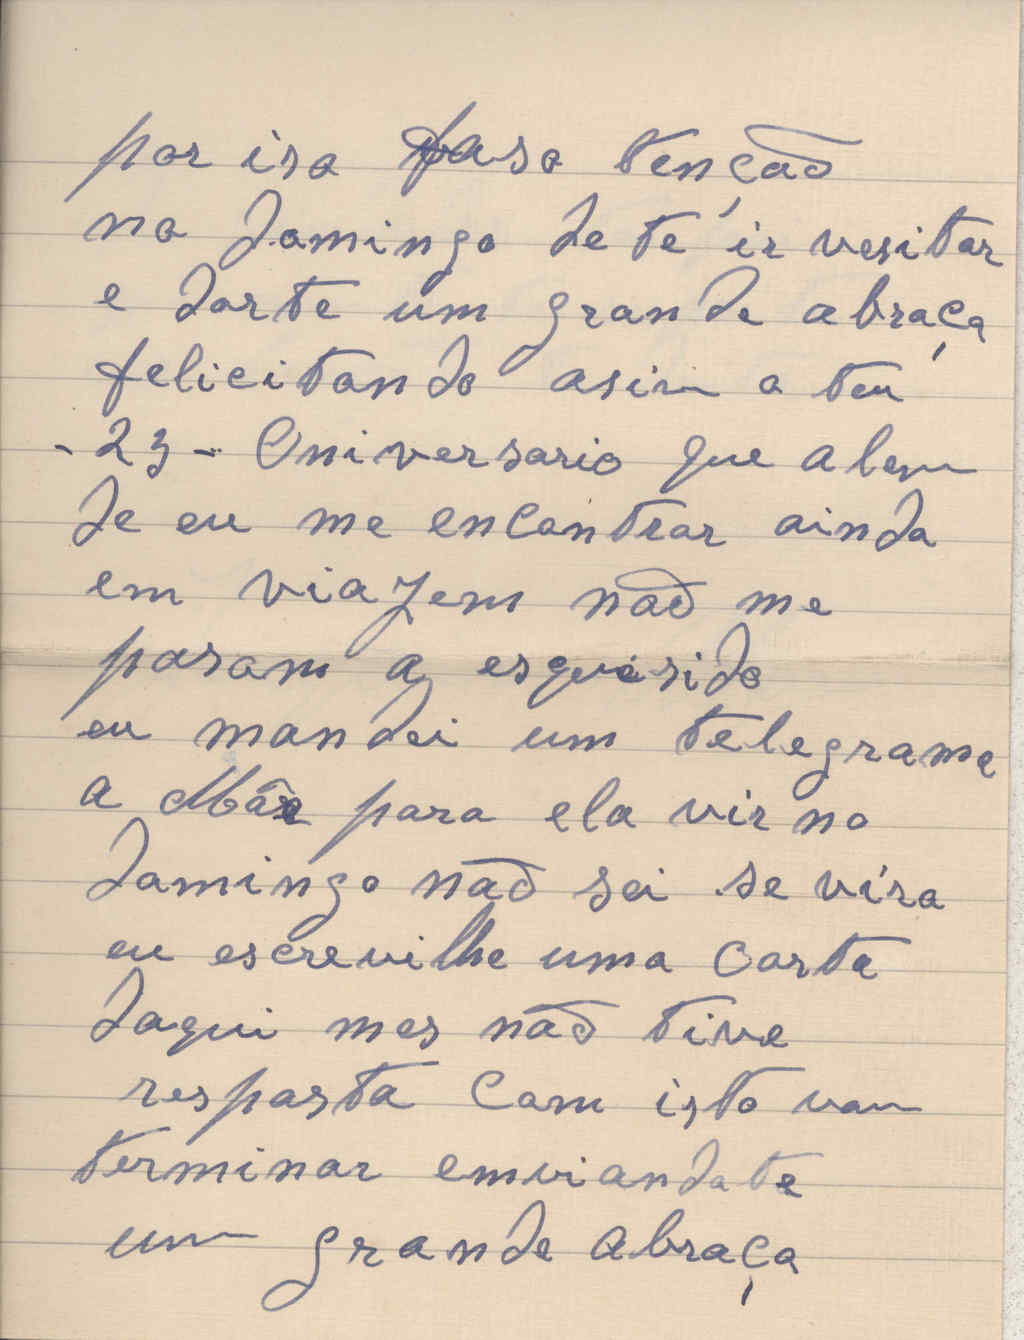 por iso faso tenção
no domingo de te ir vesitar
e darte um grande abraço
felicitando asim o teu
- 23 - Aniversario que alem
de eu me encontrar ainda
em viagem não me
pasam a esquesido
eu mandei um telegrama
a Mãe para ela vir no
domingo não sei se víra
eu escrevilhe uma carta
daqui mes não tive
resposta com isto vou
terminar emviandote
um grande abraço